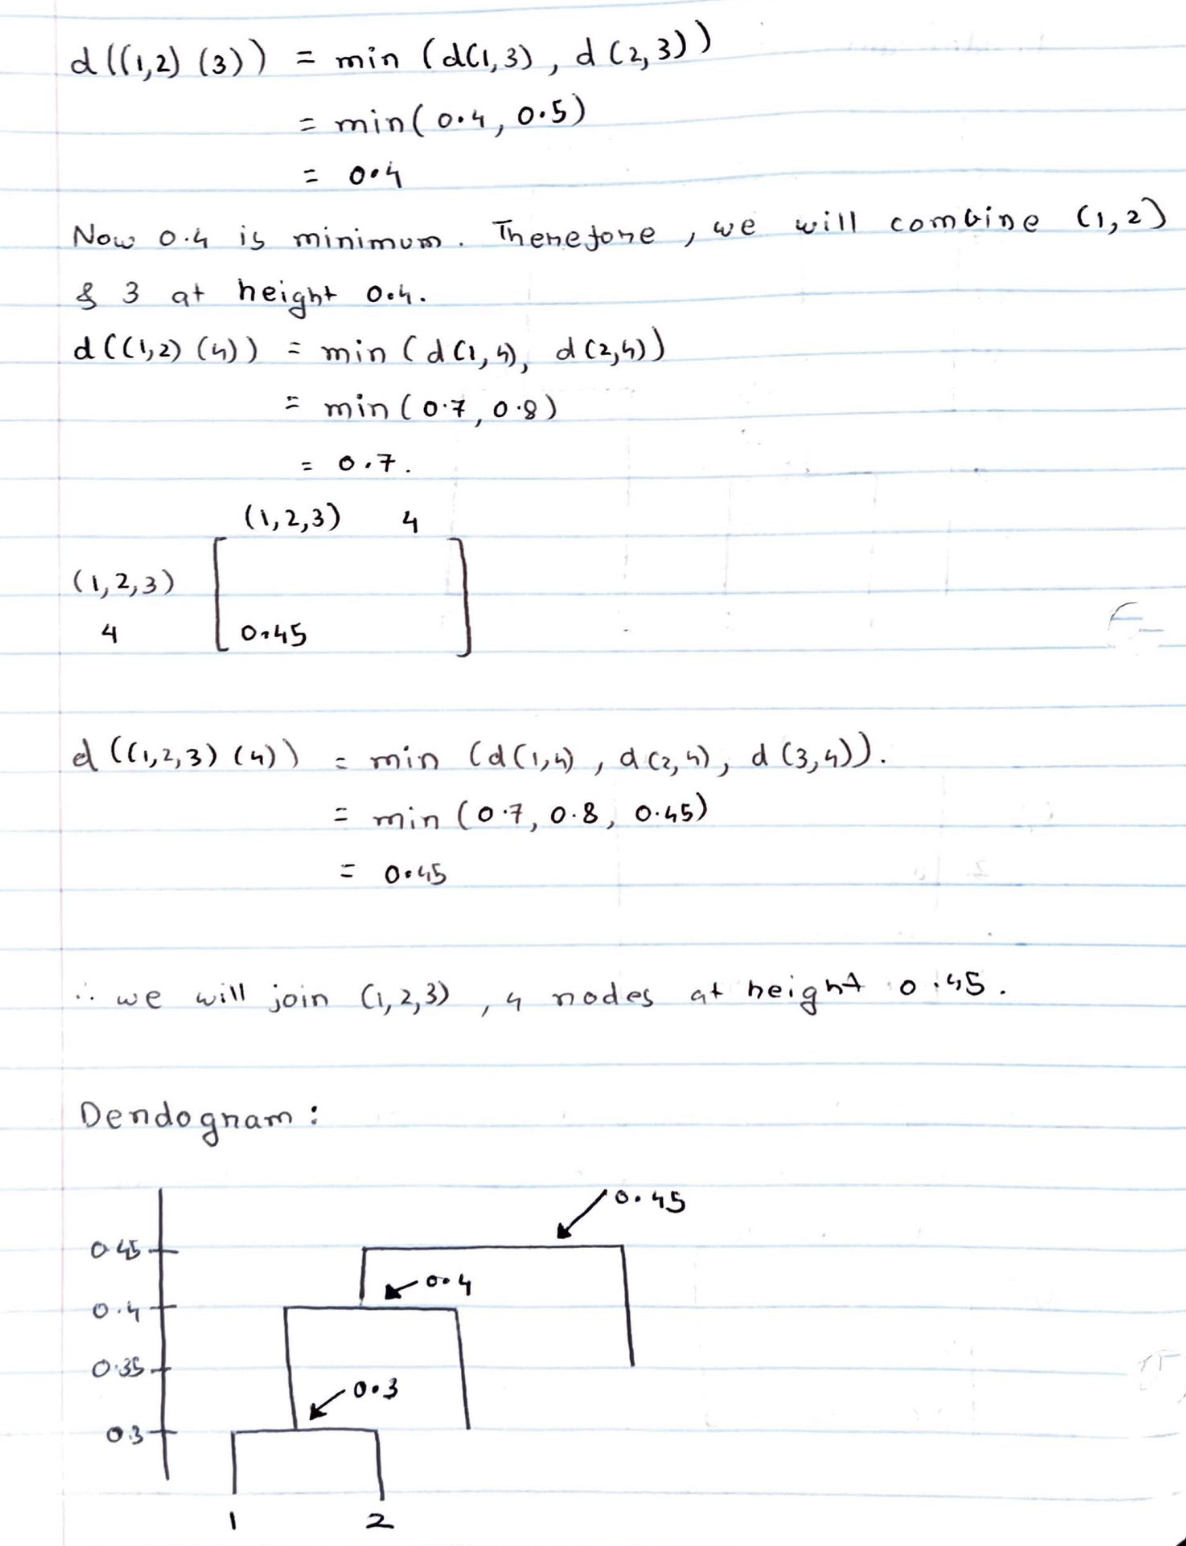 d((1,2) (3)) = min (d(1,3), d(2,3))
= min(0.4, 0.5)
= 0.4
Now 0.4 is minimum. Therefore, we will combine (1,2)
& 3 at height 0.4.
d((1,2) (4)) = min (d(1,4), d(2,4))
= min (0.7, 0.8)
= 0.7.
(1,2,3) 4
(1,2,3)
4 0.45
d((1,2,3) (4)) = min (d(1,4), d(2,4), d(3,4)).
= min (0.7, 0.8, 0.45)
= 0.45
∴ we will join (1,2,3), 4 nodes at height 0.45.
Dendogram:
0.45
0.45
0.4
0.4
0.35
0.3
0.3
1 2